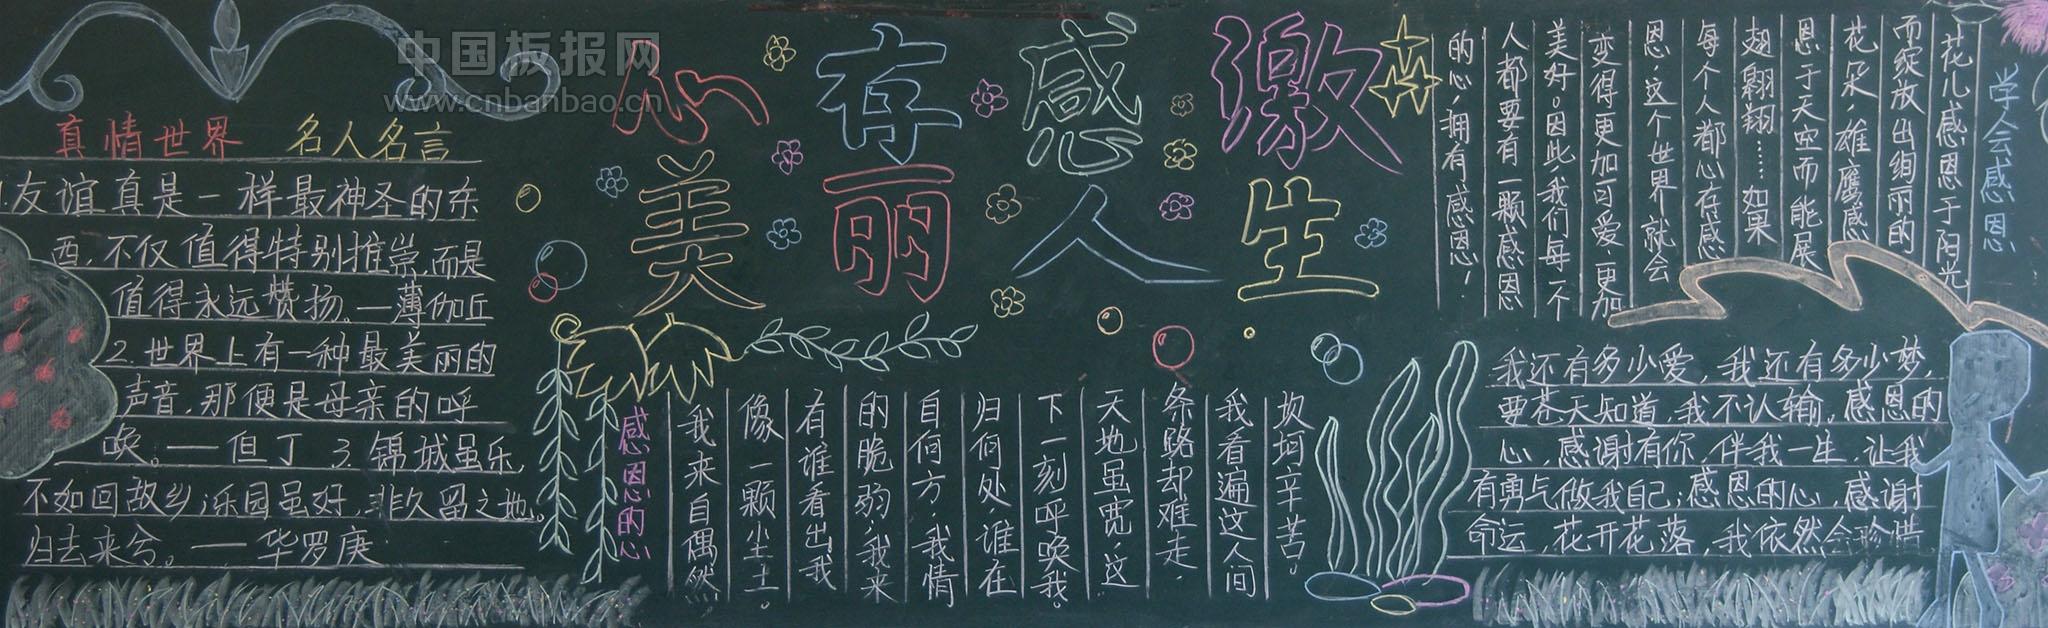 中国板报网
www.cnbanbao.cn
心存感激
美丽人生
真情世界 名人名言
1.友谊真是一样最神圣的东
西,不仅值得特别推崇,而是
值得永远赞扬。—薄伽丘
2.世界上有一种最美丽的
声音,那便是母亲的呼
唤。—但丁 3.锦城虽乐,
不如回故乡;乐园虽好,非久留之地。
归去来兮。—华罗庚
感恩的心
我来自偶然
像一颗尘土。
有谁看出我
的脆弱,我来
自何方,我情
归何处,谁在
下一刻呼唤我。
天地虽宽,这
条路却难走,
我看遍这人间
坎坷辛苦。
学会感恩
花儿感恩于阳光
而绽放出绚丽的
花朵,雄鹰感
恩于天空而能展
翅翱翔……如果
每个人都心存感
恩,这个世界就会
变得更加可爱,更加
美好。因此,我们每一个
人都要有一颗感恩
的心,拥有感恩!
我还有多少爱,我还有多少梦,
要苍天知道,我不认输。感恩的
心,感谢有你,伴我一生,让我
有勇气做我自己;感恩的心,感谢
命运,花开花落,我依然会珍惜